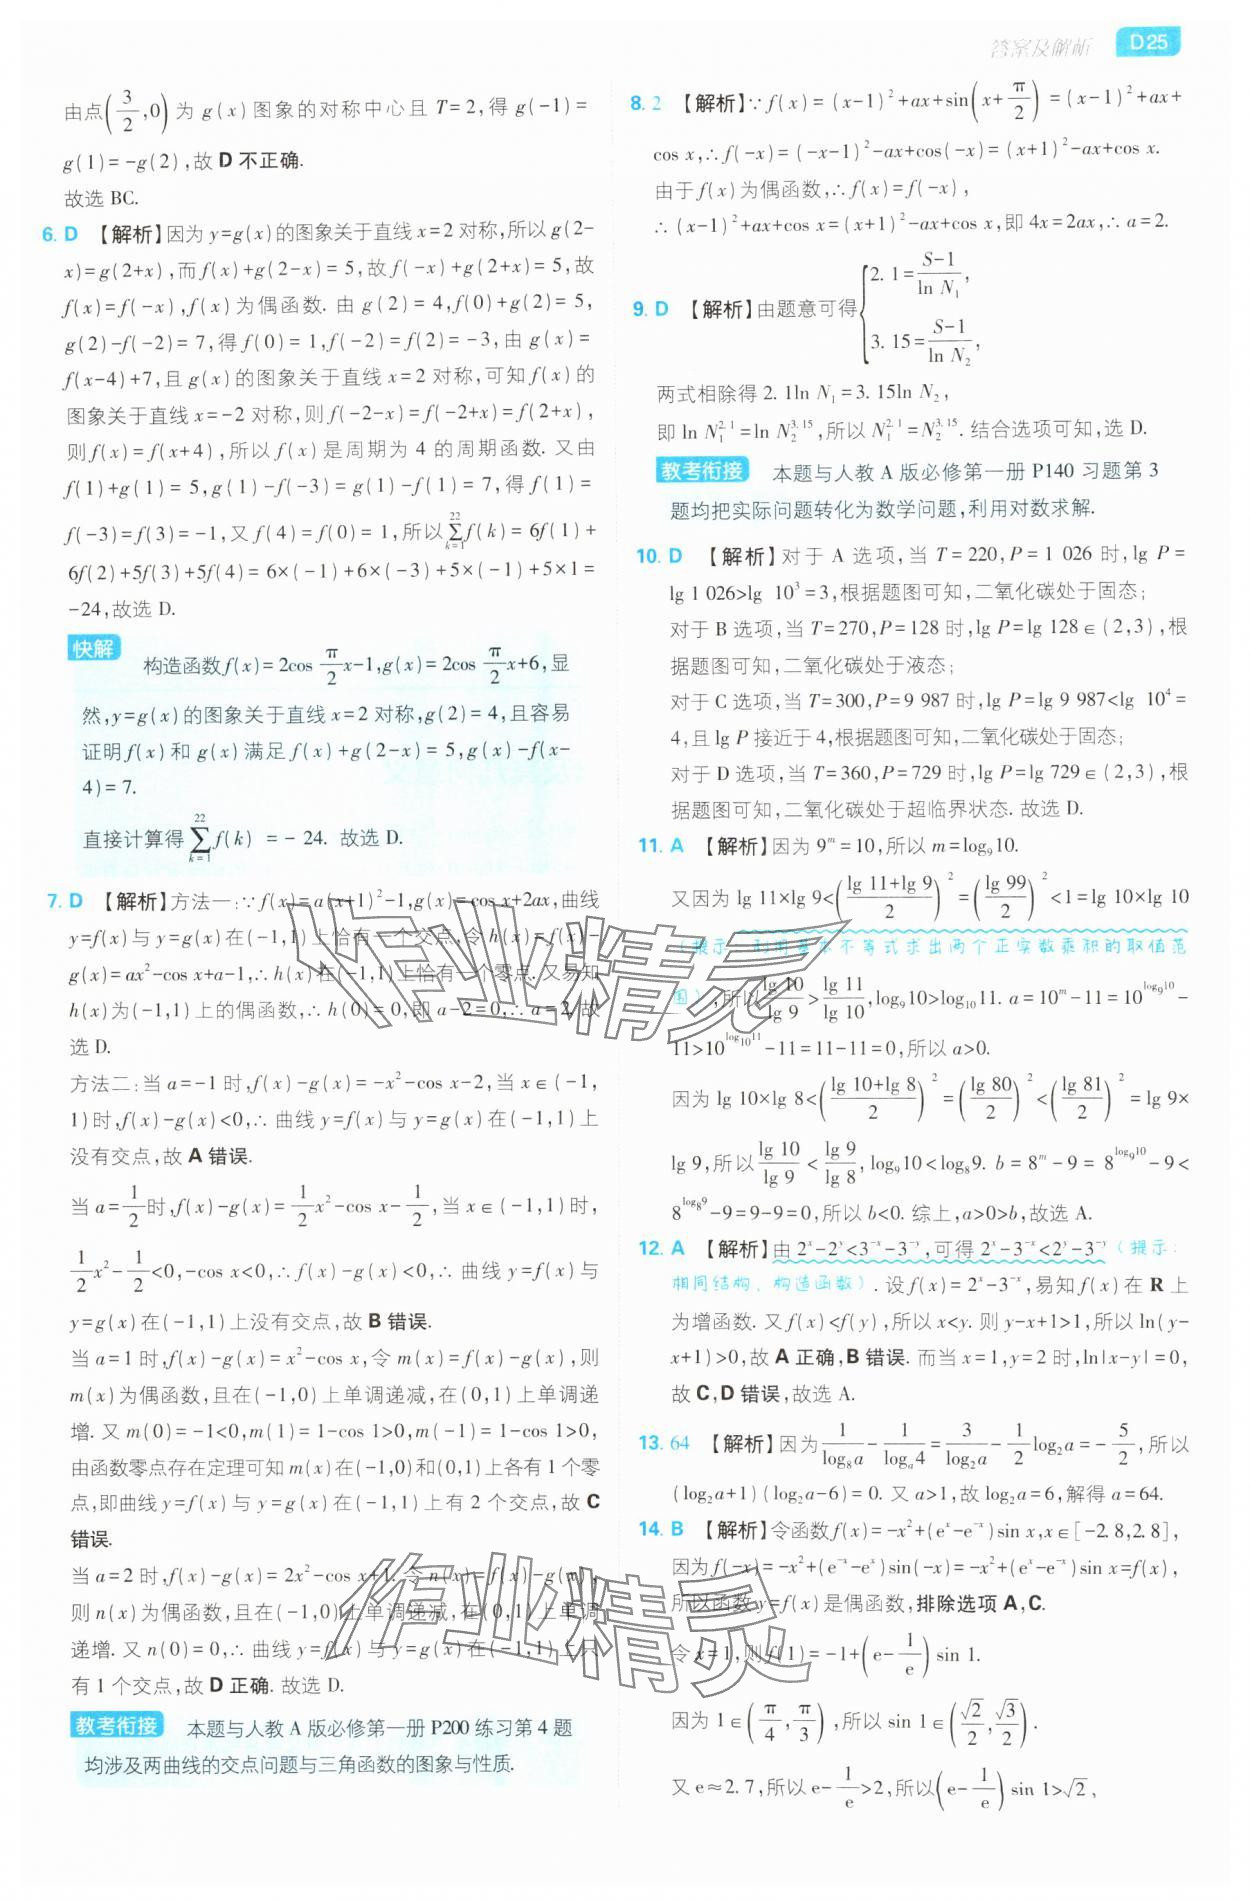 答案及解析 D25
由点(3/2,0)为 g(x)图象的对称中心且 T=2,得 g(-1)=
g(1)=-g(2),故 D 不正确.
故选 BC.
6. D 【解析】因为 y=g(x)的图象关于直线 x=2 对称,所以 g(2-
x)=g(2+x),而 f(x)+g(2-x)=5,故 f(-x)+g(2+x)=5,故
f(x)=f(-x),f(x)为偶函数. 由 g(2)=4,f(0)+g(2)=5,
g(2)-f(-2)=7,得 f(0)=1,f(-2)=f(2)=-3,由 g(x)=
f(x-4)+7,且 g(x)的图象关于直线 x=2 对称,可知 f(x)的
图象关于直线 x=-2 对称,则 f(-2-x)=f(-2+x)=f(2+x),
则 f(x)=f(x+4),所以 f(x)是周期为 4 的周期函数. 又由
f(1)+g(1)=5,g(1)-f(-3)=g(1)-f(1)=7,得 f(1)=
f(-3)=f(3)=-1,又 f(4)=f(0)=1,所以 ∑_{k=1}^{22} f(k)=6f(1)+
6f(2)+5f(3)+5f(4)=6×(-1)+6×(-3)+5×(-1)+5×1=
-24,故选 D.
快解 构造函数 f(x)=2cos π/2 x-1,g(x)=2cos π/2 x+6,显
然,y=g(x)的图象关于直线 x=2 对称,g(2)=4,且容易
证明 f(x)和 g(x)满足 f(x)+g(2-x)=5,g(x)-f(x-
4)=7.
直接计算得 ∑_{k=1}^{22} f(k) =-24. 故选 D.
7. D 【解析】方法一:∵f(x)=a(x+1)²-1,g(x)=cos x+2ax,曲线
y=f(x)与 y=g(x)在(-1,1)上恰有一个交点,令 h(x)=f(x)-
g(x)=ax²-cos x+a-1,∴h(x)在(-1,1)上恰有一个零点. 又易知
h(x)为(-1,1)上的偶函数,∴h(0)=0,即 a-2=0,∴a=2,故
选 D.
方法二:当 a=-1 时,f(x)-g(x)=-x²-cos x-2,当 x∈(-1,
1)时,f(x)-g(x)<0,∴曲线 y=f(x)与 y=g(x)在(-1,1)上
没有交点,故 A 错误.
当 a=1/2 时,f(x)-g(x)=1/2 x²-cos x-1/2,当 x∈(-1,1)时,
1/2 x²-1/2<0,-cos x<0,∴f(x)-g(x)<0,∴曲线 y=f(x)与
y=g(x)在(-1,1)上没有交点,故 B 错误.
当 a=1 时,f(x)-g(x)=x²-cos x,令 m(x)=f(x)-g(x),则
m(x)为偶函数,且在(-1,0)上单调递减,在(0,1)上单调递
增. 又 m(0)=-1<0,m(1)=1-cos 1>0,m(-1)=1-cos 1>0,
由函数零点存在定理可知 m(x)在(-1,0)和(0,1)上各有 1 个零
点,即曲线 y=f(x)与 y=g(x)在(-1,1)上有 2 个交点,故 C
错误.
当 a=2 时,f(x)-g(x)=2x²-cos x+1. 令 n(x)=f(x)-g(x),
则 n(x)为偶函数,且在(-1,0)上单调递减,在(0,1)上单调
递增. 又 n(0)=0,∴曲线 y=f(x)与 y=g(x)在(-1,1)上只
有 1 个交点,故 D 正确. 故选 D.
教考衔接 本题与人教 A 版必修第一册 P200 练习第 4 题
均涉及两曲线的交点问题与三角函数的图象与性质.
8. 2 【解析】∵f(x)=(x-1)²+ax+sin(x+π/2)=(x-1)²+ax+
cos x,∴f(-x)=(-x-1)²-ax+cos(-x)=(x+1)²-ax+cos x.
由于 f(x)为偶函数,∴f(x)=f(-x),
∴(x-1)²+ax+cos x=(x+1)²-ax+cos x,即 4x=2ax,∴a=2.
9. D 【解析】由题意可得{2.1=(S-1)/ln N₁, 3.15=(S-1)/ln N₂,
两式相除得 2.1ln N₁=3.15ln N₂,
即 ln N₁^{2.1}=ln N₂^{3.15},所以 N₁^{2.1}=N₂^{3.15}. 结合选项可知,选 D.
教考衔接 本题与人教 A 版必修第一册 P140 习题第 3
题均把实际问题转化为数学问题,利用对数求解.
10. D 【解析】对于 A 选项,当 T=220,P=1 026 时,lg P=
lg 1 026>lg 10³=3,根据题图可知,二氧化碳处于固态;
对于 B 选项,当 T=270,P=128 时,lg P=lg 128∈(2,3),根
据题图可知,二氧化碳处于液态;
对于 C 选项,当 T=300,P=9 987 时,lg P=lg 9 987<lg 10⁴=
4,且 lg P 接近于 4,根据题图可知,二氧化碳处于固态;
对于 D 选项,当 T=360,P=729 时,lg P=lg 729∈(2,3),根
据题图可知,二氧化碳处于超临界状态. 故选 D.
11. A 【解析】因为 9^m=10,所以 m=log₉10.
又因为 lg 11×lg 9<((lg 11+lg 9)/2)²=(lg 99/2)²<1=lg 10×lg 10
(提示:利用基本不等式求出两个正实数乘积的取值范
围),所以 lg 10/lg 9>lg 11/lg 10,log₉10>log₁₀11. a=10^m-11=10^{log₉10}-
11>10^{log₁₀11}-11=11-11=0,所以 a>0.
因为 lg 10×lg 8<((lg 10+lg 8)/2)²=(lg 80/2)²<(lg 81/2)²=lg 9×
lg 9,所以 lg 10/lg 9<lg 9/lg 8,log₉10<log₈9. b=8^m-9=8^{log₉10}-9<
8^{log₈9}-9=9-9=0,所以 b<0. 综上,a>0>b,故选 A.
12. A 【解析】由 2^x-2^y<3^{-x}-3^{-y},可得 2^x-3^{-x}<2^y-3^{-y}(提示:
相同结构,构造函数). 设 f(x)=2^x-3^{-x},易知 f(x)在 R 上
为增函数. 又 f(x)<f(y),所以 x<y. 则 y-x+1>1,所以 ln(y-
x+1)>0,故 A 正确,B 错误. 而当 x=1,y=2 时,ln|x-y|=0,
故 C,D 错误,故选 A.
13. 64 【解析】因为 1/log₈a-1/logₐ4=3/log₂a-1/2 log₂a=-5/2,所以
(log₂a+1)(log₂a-6)=0. 又 a>1,故 log₂a=6,解得 a=64.
14. B 【解析】令函数 f(x)=-x²+(e^x-e^{-x})sin x,x∈[-2.8,2.8],
因为 f(-x)=-x²+(e^{-x}-e^x)sin(-x)=-x²+(e^x-e^{-x})sin x=f(x),
所以函数 y=f(x)是偶函数,排除选项 A,C.
令 x=1,则 f(1)=-1+(e-1/e)sin 1.
因为 1∈(π/4,π/3),所以 sin 1∈(√2/2,√3/2).
又 e≈2.7,所以 e-1/e>2,所以(e-1/e)sin 1>√2,
作业精灵
作业精灵